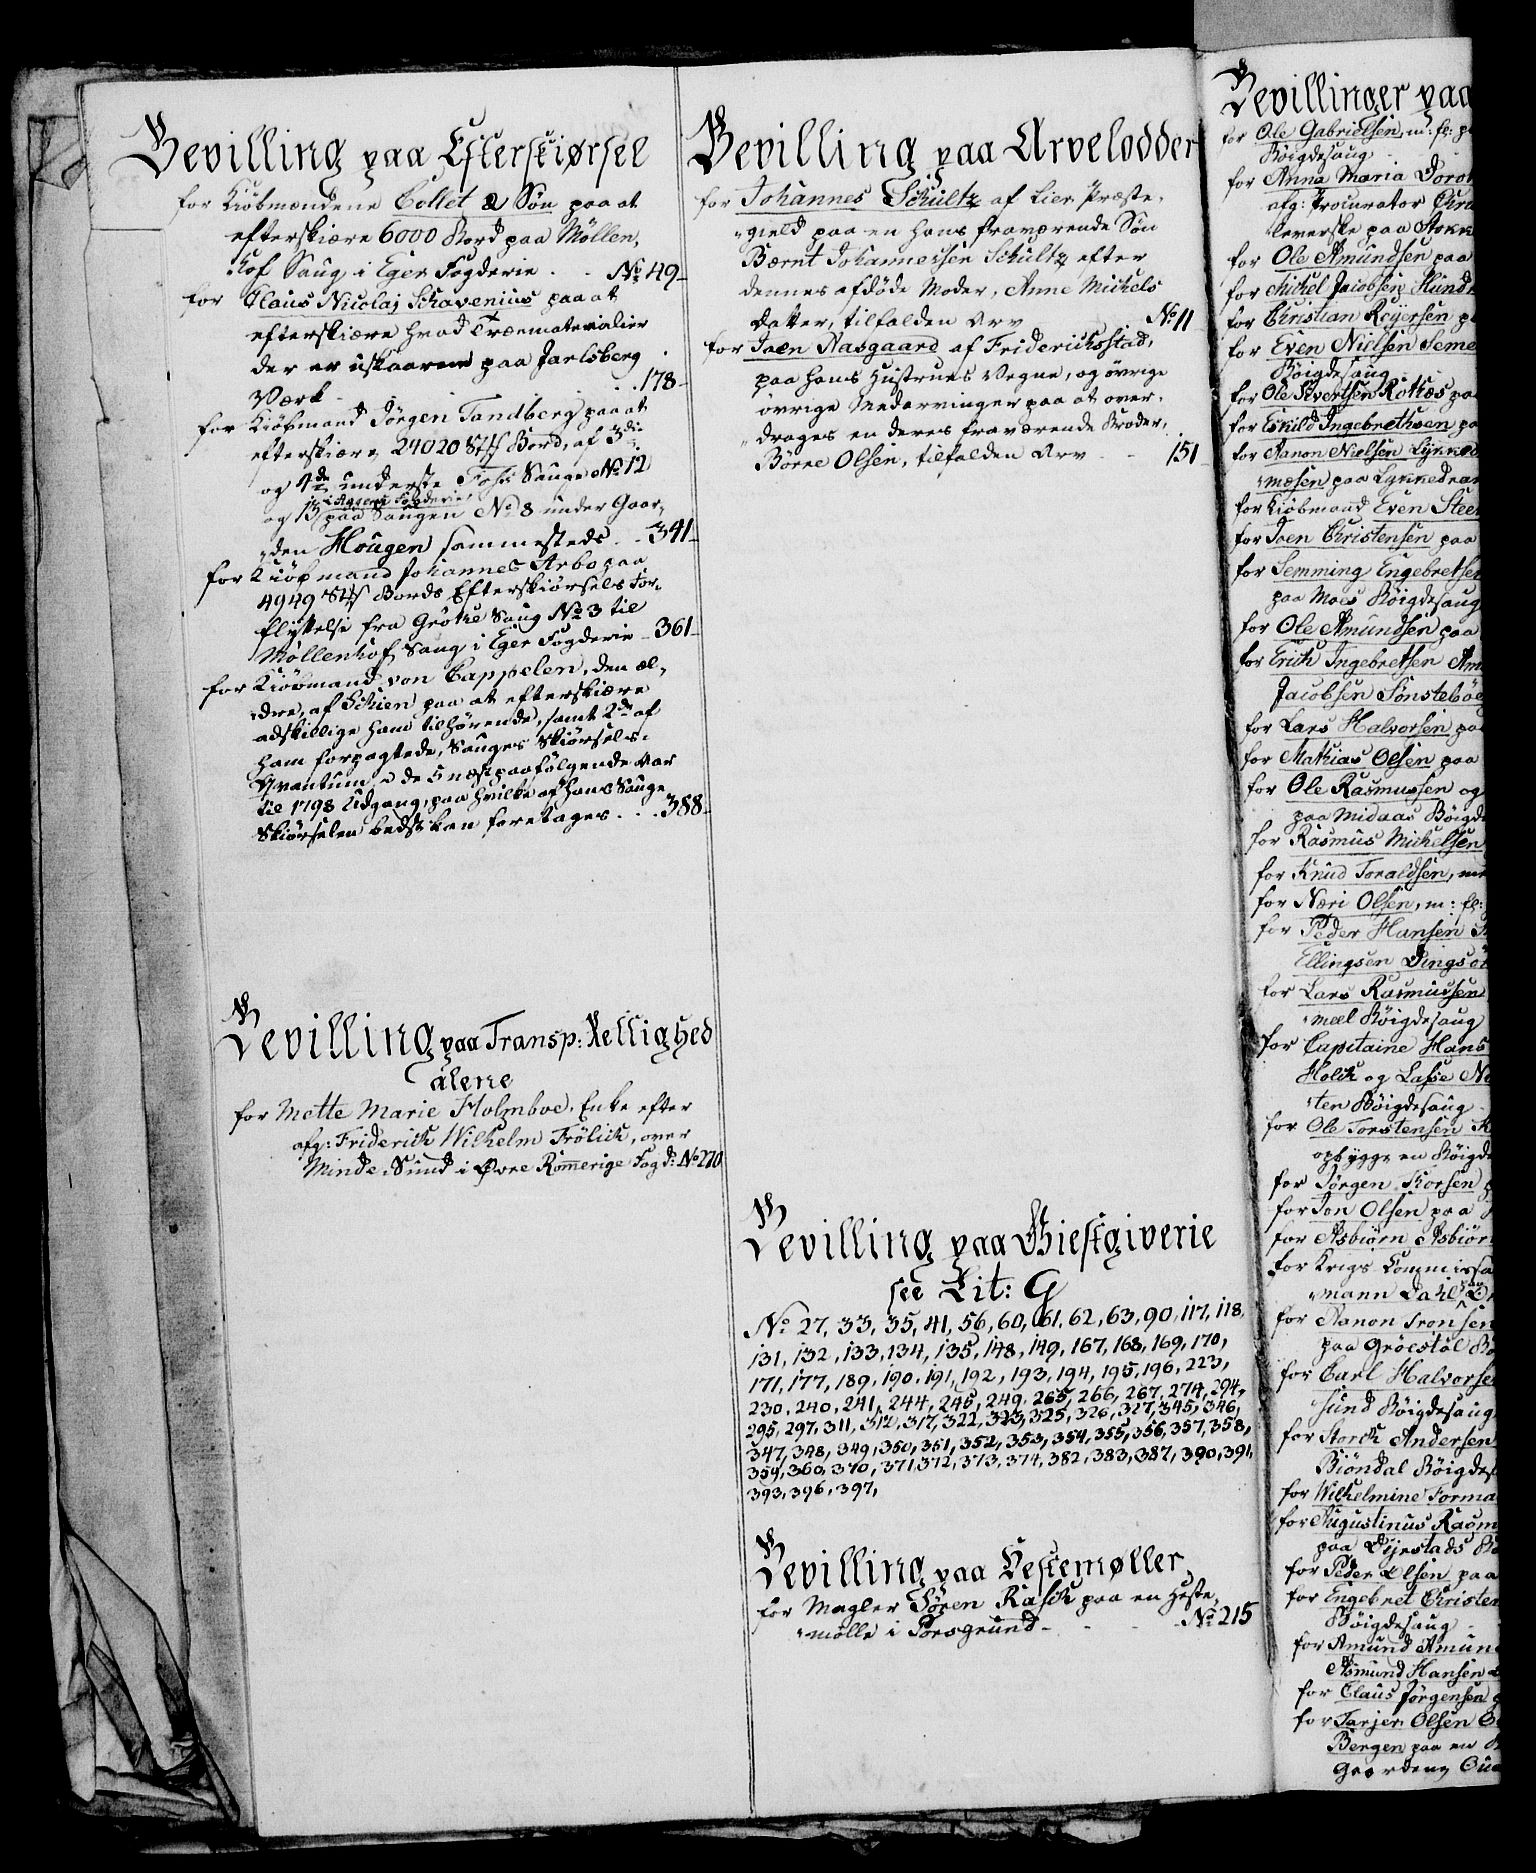 Bevilling paa Efterskiørsel
for Kiöbmændene Collet & Sön paa at
efterskiære 6000 Bord paa Möllen,
Hof Saug i Eger Fogderie . . No 49
for Claus Nicolaj Schavenius paa at
efterskiære hvad Træmaterialier
der er uskaaren paa Jarlsberg
Værk . . . 178
for Kiöbmand Jörgen Tandberg paa at
efterskiære 24020 Stk Bord, af 3die
og 4de underste Foss Sauge No 12
i Aggers Fogderie
og 13 paa Saugen No 8 under Gaar-
den Hougen sammesteds . . 341
for Kiöbmand Johannes Arbo paa
4949 Stk Bords Efterskiörsels For-
flyttelse fra Gröthe Saug No 3 til
Möllenhof Saug i Eger Fogderie . 361
for Kiöbmand von Cappelen, den æl-
dre, af Schien paa at efterskiære
adskillige ham tilhörende, samt 2de af
ham forpagtede, Sauges Skiörsels-
Qvantum i de 5 næstpaafölgende Aar
til 1798 Udgang, paa hvilke af hans Sauge
Skiörselen bedst kan foretages . . . 388
Bevilling paa Transp: Rettighed
alene
for Mette Marie Holmboe, Enke efter
afg: Friderich Wilhelm Frölich, over
Minde-Sund i Øvre Romerige Fogd: No 270
Bevilling paa Arvelodder
for Johannes Schultz af Lier Præste-
gield paa en hans fraværende Sön
Bærnt Johannessen Schultz efter
dennes afdöde Moder, Anne Michels
Datter, tilfalden Arv No 11
for Joen Nasgaard af Friderichsstad,
paa hans Hustrues Vegne, og övrige
övrige Medarvinger paa at over-
drages en deres fraværende Broder,
Börre Olsen, tilfalden Arv . . 151
Bevilling paa Giestgiverie
see Lit: G
No 27, 33, 35, 41, 56, 60, 61, 62, 63, 90, 117, 118,
131, 132, 133, 134, 135, 148, 149, 167, 168, 169, 170,
171, 177, 189, 190, 191, 192, 193, 194, 195, 196, 223,
230, 240, 241, 244, 245, 249, 265, 266, 267, 274, 294,
295, 297, 311, 312, 317, 322, 323, 325, 326, 327, 345, 346,
347, 348, 349, 350, 351, 352, 353, 354, 355, 356, 357, 358,
359, 360, 370, 371, 372, 373, 374, 382, 383, 387, 390, 391,
393, 396, 397,
Bevilling paa Hestemøller
for Magler Sören Rasch paa en Heste-
mölle i Porsgrund . . . No 215
Bevillinger paa
for Ole Gabrielsen, m: fl: p
Böigdesaug
for Anna Maria Dorot
afg: Procurator
leverske paa
for Ole Amundsen paa
for Michel Jacobsen
for Christian Royersen p
for Even Nielsen
Böigdesaug
for Ole Sivertsen Rothæs pa
for Eskild Ingebrethsen pa
for Aanon Nielsen
paa
for Kiöbmand Even Steen
for Joen Christensen paa
for Semming Engebretsen
paa Moes Böigdesaug
for Ole Amundsen paa
for Erich Ingebretsen Am
Jacobsen Sönsteböe
for Lars Halvorsen pa
for Mathias Olsen paa
for Ole Rasmussen og
paa Midaas Böigd
for Rasmus Michelsen
for Knud Toraldsen, m
for Næri Olsen, m: fl:
for Peder Hansen
Ellingsen Dingsö
for Lars Rasmussen
meel Böigdesaug
for Capitaine Hans
Holch og Lasse N
ten Böigdesaug
for Ole Torstensen K
opbygge en Böigde
for Jörgen Korsen p
for Jon Olsen paa
for Asbiörn Asbiör
for Krigs Commissa
mann Dahl, paa
for Aanon Tronsen
paa Gröestöl Bö
for Carl Halvorse
sund Böigdesaug
for Storch Andersen
Biöndal Böigdes
for Wilhelmine Forma
for Augustinus Rasm
paa Dyrstads Bö
for Peder Olsen paa
for Engebret Christen
Böigdesaug
for Amund Amun
Asmund Hansen
for Claus Jörgensen
for Tarjer Olsen
Bergen paa en B
Gaardens